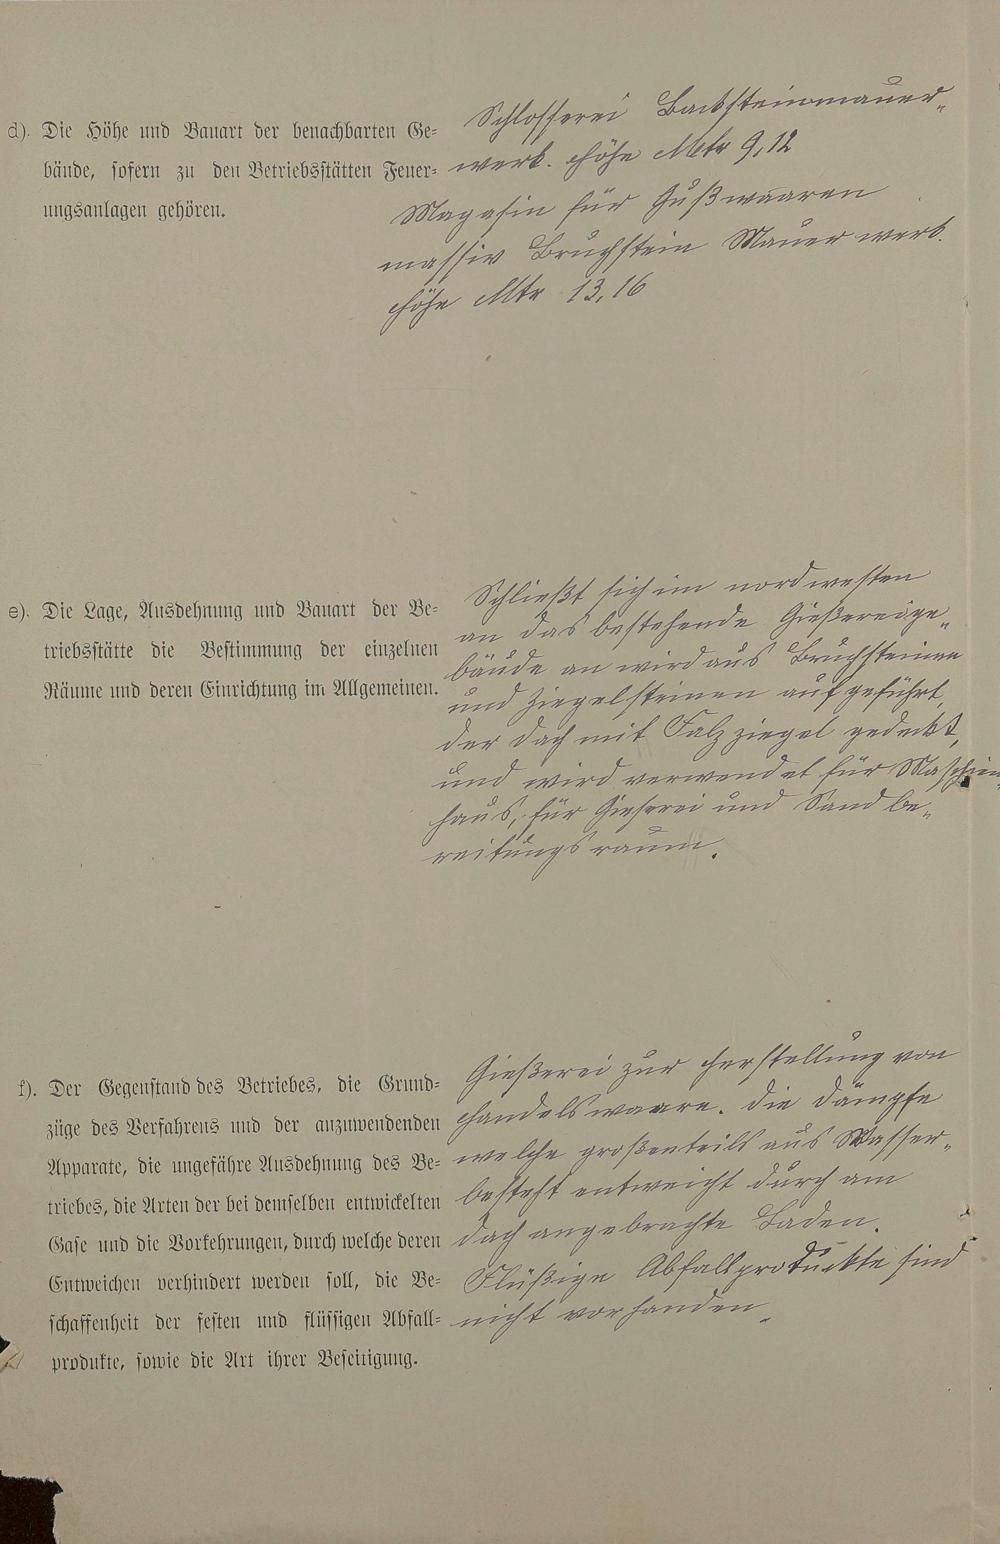 d). Die Höhe und Bauart der benachbarten Ge-
bäude, sofern zu den Betriebsstätten Feuer-
ungsanlagen gehören.
Schlosserei Backsteinmauer-
werk. Höhe Mtr 9,12
Magasin für Gußwaaren
massiv Bruchstein Mauerwerk.
Höhe Mtr 13,16
e). Die Lage, Ausdehnung und Bauart der Be-
triebsstätte die Bestimmung der einzelnen
Räume und deren Einrichtung im Allgemeinen.
Schließt sich im nordwesten
an das bestehende Gießereige-
bäude an wird aus Bruchsteinen
und Ziegelsteinen aufgeführt,
der Dach mit Falzziegel gedeckt,
und wird verwendet für Maschien-
haus, für Gieserei und Sandbe-
reitungsraum.
f). Der Gegenstand des Betriebes, die Grund-
züge des Verfahrens und der anzuwendenden
Apparate, die ungefähre Ausdehnung des Be-
triebes, die Arten der bei demselben entwickelten
Gase und die Vorkehrungen, durch welche deren
Entweichen verhindert werden soll, die Be-
schaffenheit der festen und flüssigen Abfall-
produkte, sowie die Art ihrer Beseitigung.
Gießerei zur Herstellung von
Handelswaare. Die Dämpfe
welche großenteils aus Wasser-
besteht entweicht durch am
Dach angebrachte Laden.
Flüßige Abfallprodukte sind
nicht vorhanden.